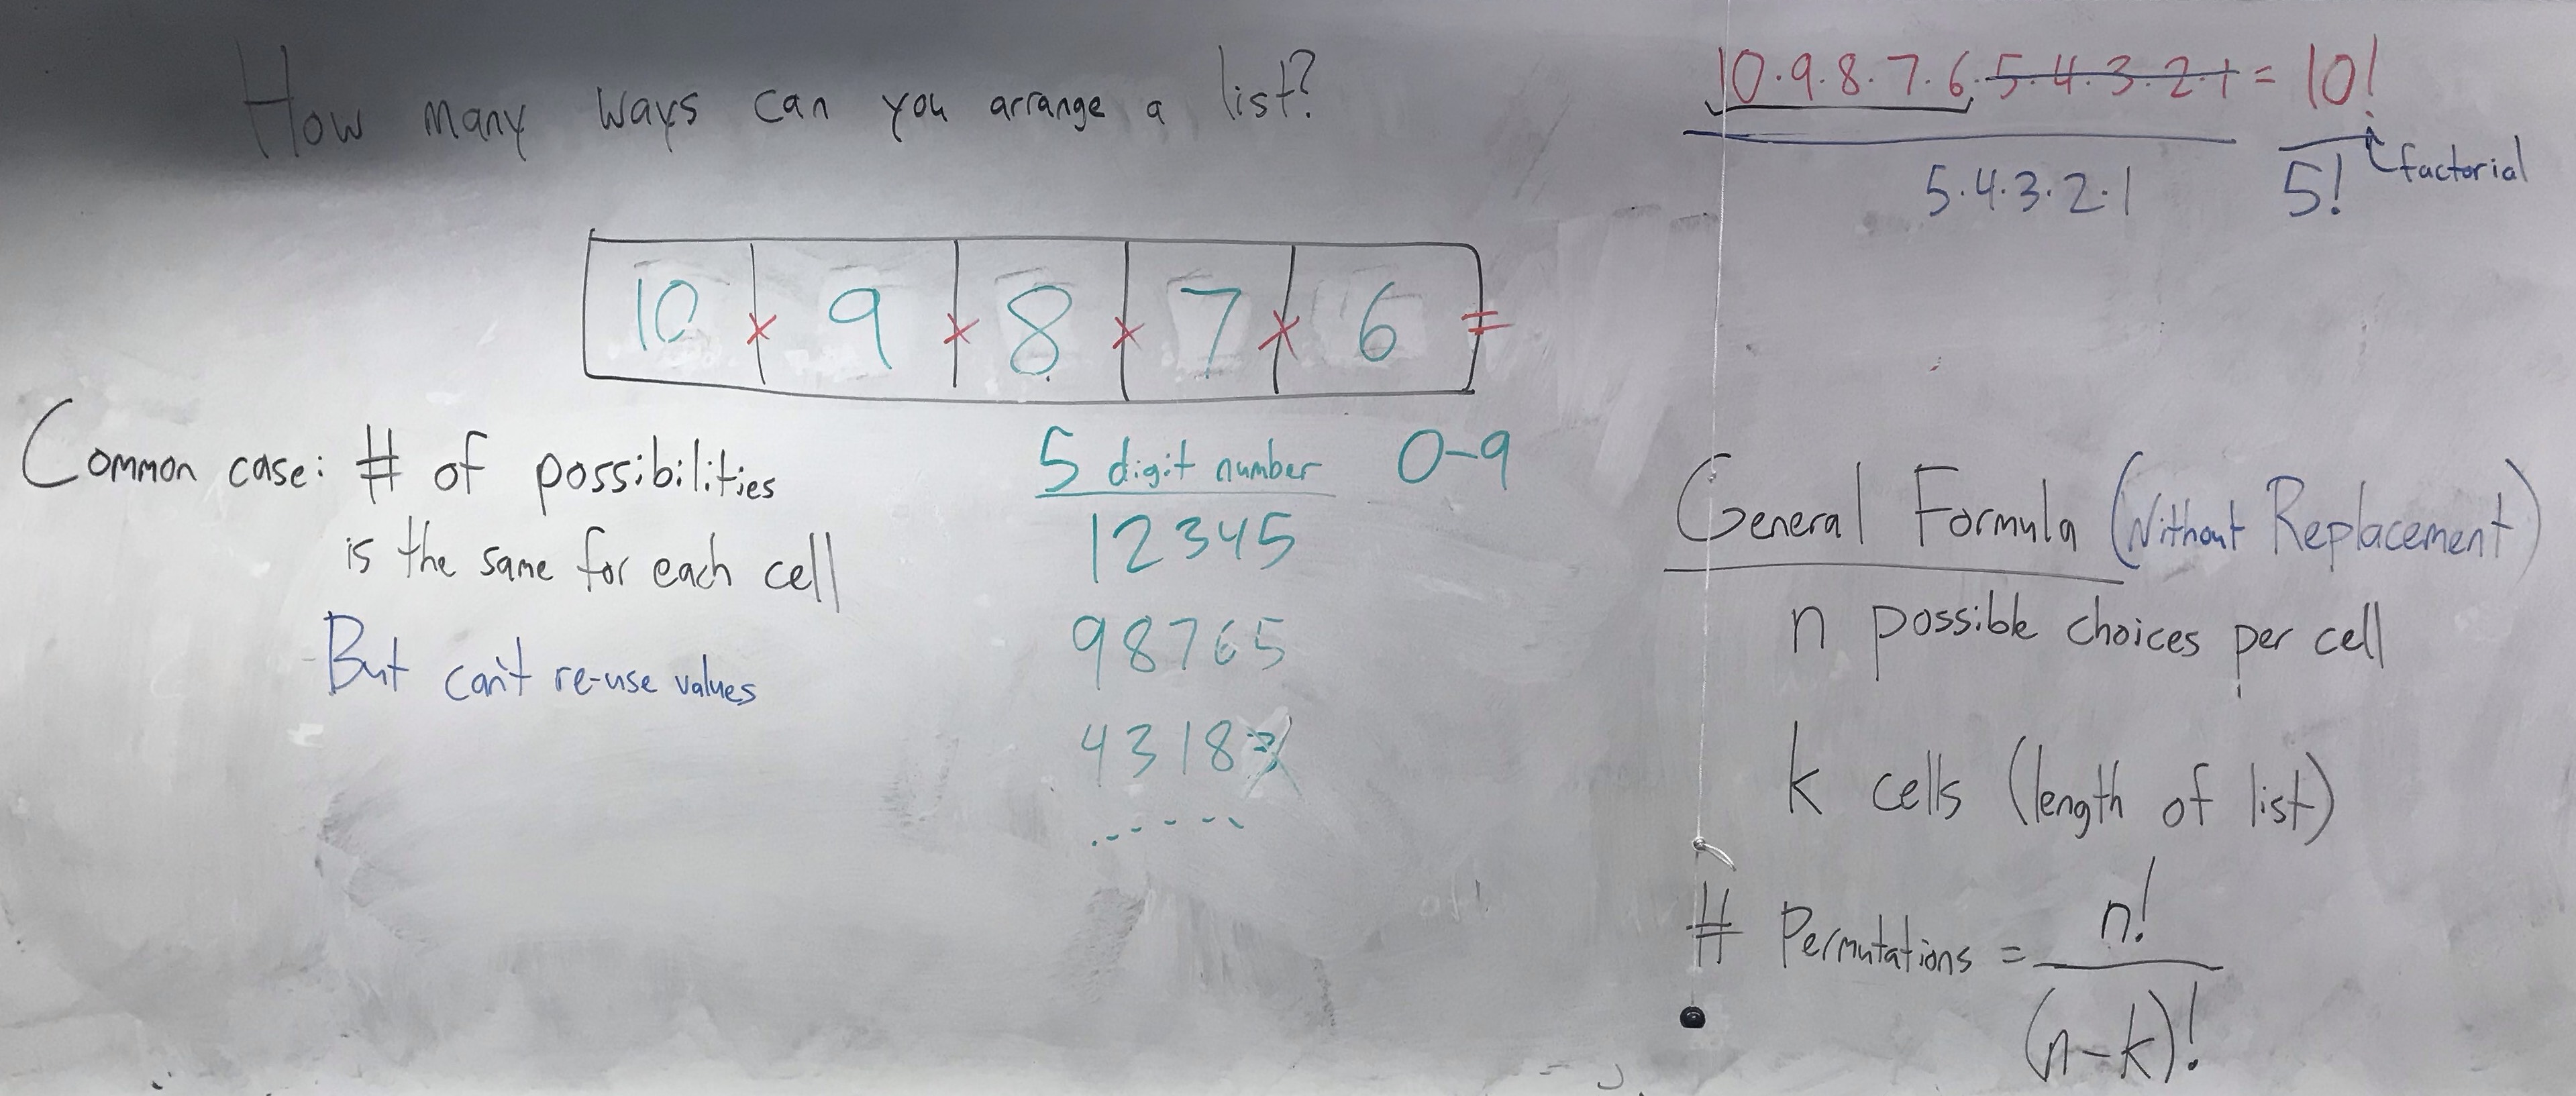 How many ways can you arrange a list?
10 × 9 × 8 × 7 × 6 =
Common case: # of possibilities
is the same for each cell
But can't re-use values
5 digit number 0-9
12345
98765
4318
10·9·8·7·6·5·4·3·2·1 = 10!
5·4·3·2·1 5!
factorial
General Formula (Without Replacement)
n possible choices per cell
k cells (length of list)
# Permutations = n!
(n-k)!